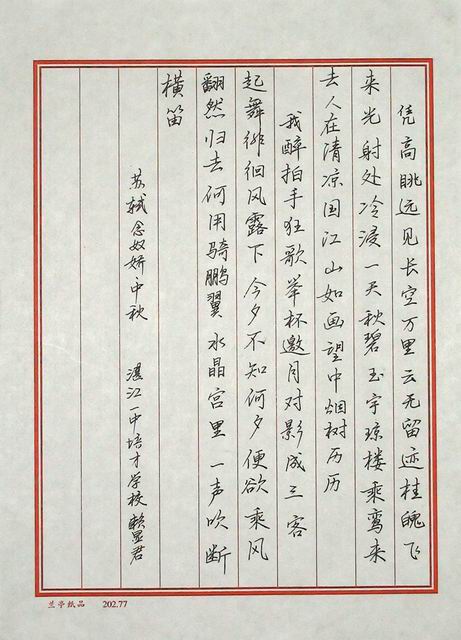 凭高眺远见长空万里云无留迹桂魄飞
来光射处冷浸一天秋碧玉宇琼楼乘鸾来
去人在清凉国江山如画望中烟树历历
我醉拍手狂歌举杯邀月对影成三客
起舞徘徊风露下今夕不知何夕便欲乘风
翻然归去何用骑鹏翼水晶宫里一声吹断
横笛
苏轼念奴娇·中秋
湛江一中培才学校赖显君
兰亭纸品 202.77